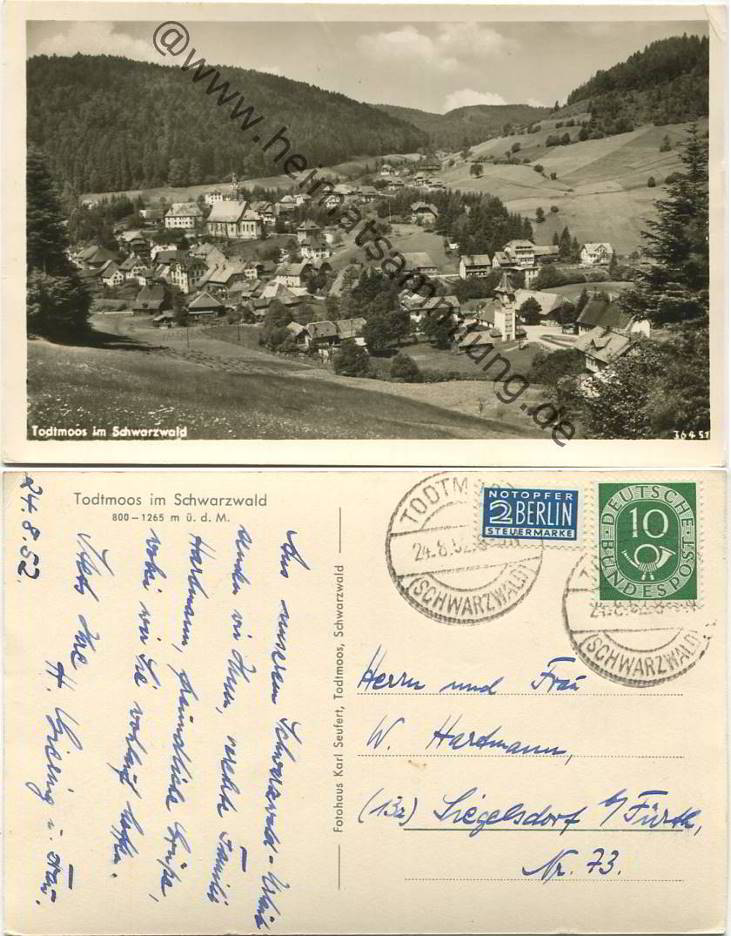 @www.heimatsammlung.de
Todtmoos im Schwarzwald
36451
24.8.52.
Todtmoos im Schwarzwald
800–1265 m ü. d. M.
Aus unserem Schwarzwald-Urlaub
senden wir Ihnen, werte Familie
Hartmann, freundliche Grüße,
wobei wir Sie wohlauf hoffen.
Ihre
H. u. Frau.
Fotohaus Karl Seufert, Todtmoos, Schwarzwald
TODTMOOS
24.8.52
(SCHWARZWALD)
NOTOPFER
2 BERLIN
STEUERMARKE
DEUTSCHE
10
BUNDESPOST
24.8.52
(SCHWARZWALD)
Herrn und Frau
W. Hartmann,
(13a) Siegelsdorf b/Fürth,
Nr. 73.